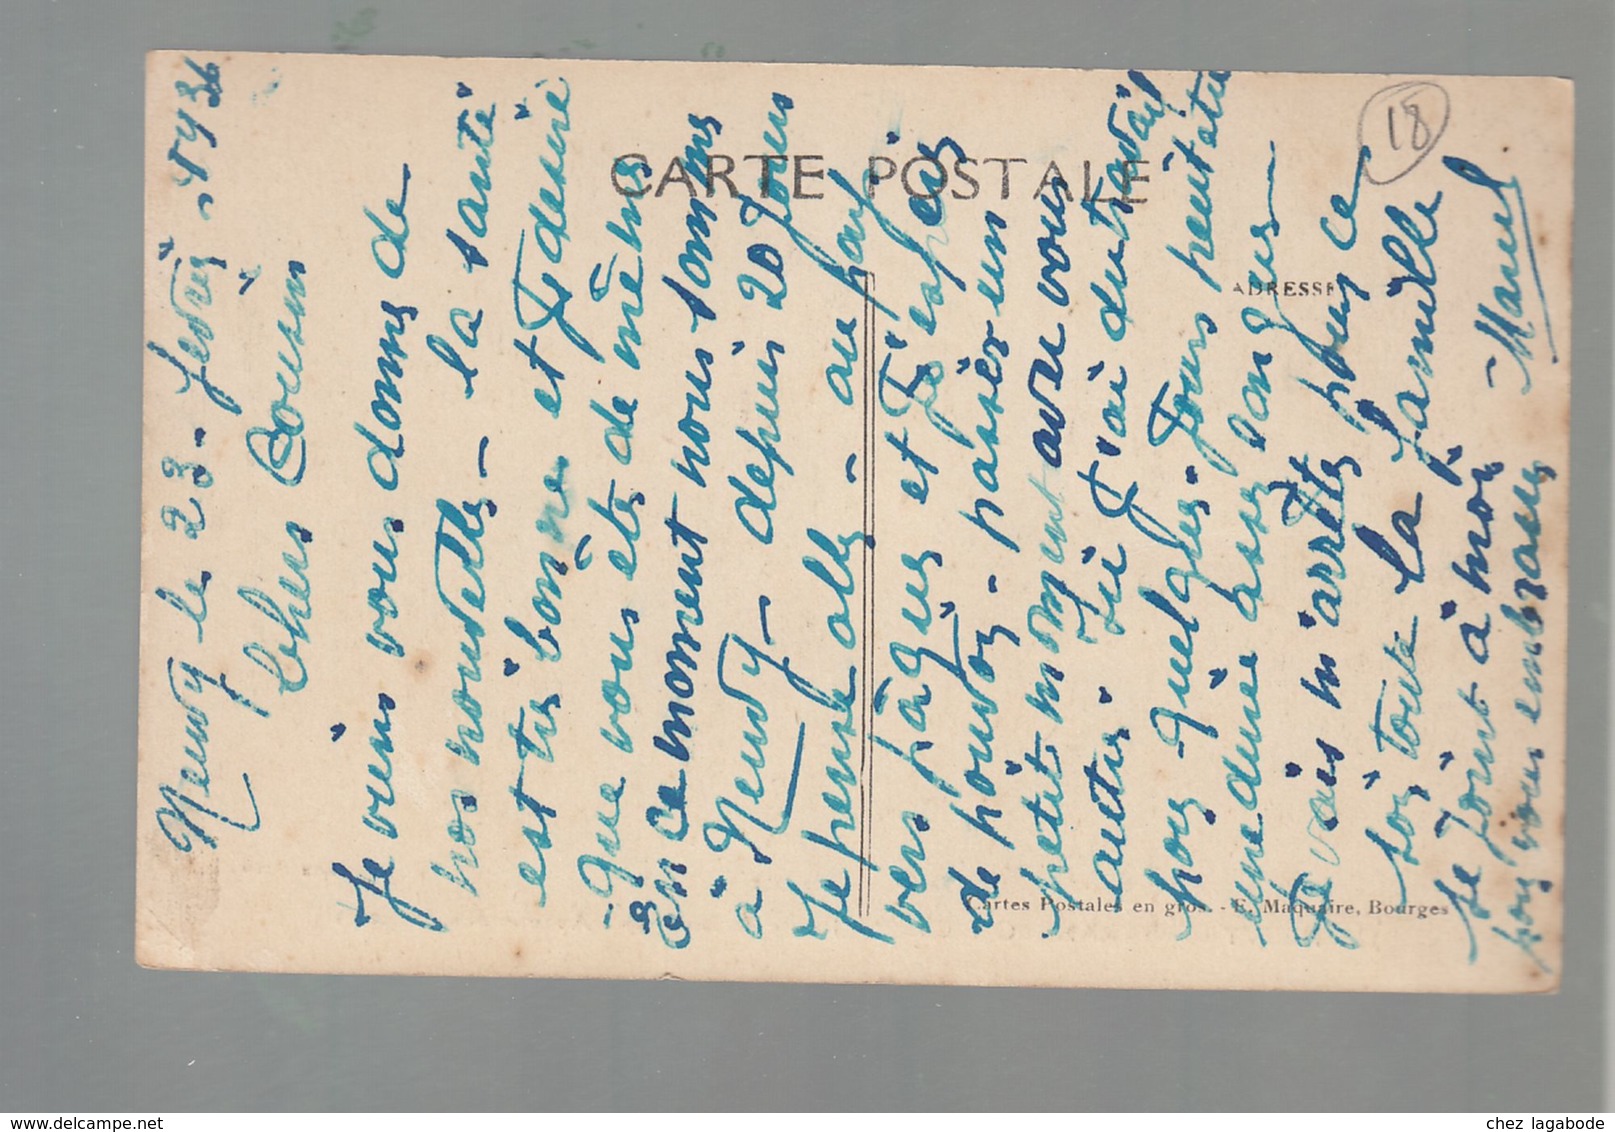 Neuvy le 23 - Fevrié - 1936
Chers Cousins
Je viens vous donnes de
nos nouvelles - la santé
est tres bonne et Je desire
que vous êtes de mêmes
En ce moment nous sommes
à Neuvy - depuis 20 Jours
Je pense alles - au pays
vers pâques et J'espères
de pouvois - passér un
petit moment avec vous
autres. Ici J'ai du travail
pour quelques - Jours peut etre
une duriè assez longues
Je vais m'arrêtes pour ce
soir toute la famille
se Joint à moi
pour vous embrasses - Marcel
18
CARTE POSTALE
ADRESSE
Cartes Postales en gros. - E. Maquaire, Bourges
chez lagabode
delcampe.net